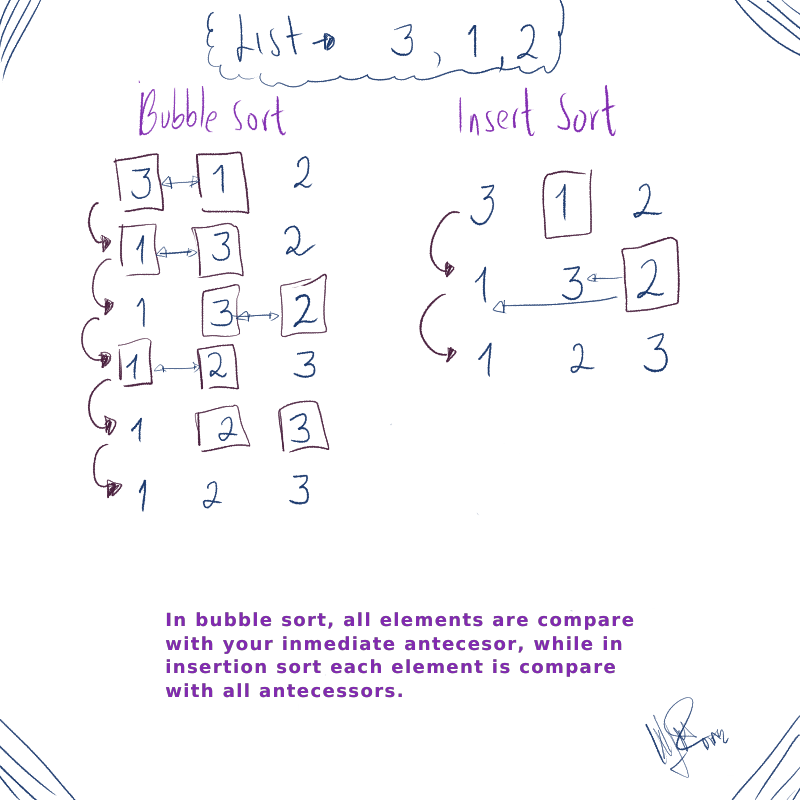 List → 3, 1, 2
Bubble Sort
Insert Sort
3 ↔ 1 2
1 ↔ 3 2
1 3 ↔ 2
1 ↔ 2 3
1 2 3
1 2 3
3 1 2
1 3 2
1 2 3
In bubble sort, all elements are compare
with your inmediate antecesor, while in
insertion sort each element is compare
with all antecessors.